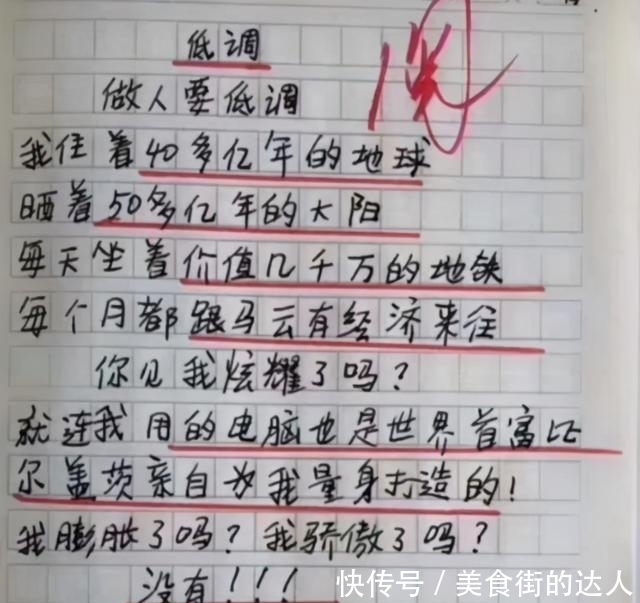 低调
做人要低调
我住着40多亿年的地球
晒着50多亿年的太阳
每天坐着价值几千万的地铁
每个月都跟马云有经济来往
你见我炫耀了吗？
就连我用的电脑也是世界首富比
尔盖茨亲自为我量身打造的！
我膨胀了吗？我骄傲了吗？
没有！！！
快传号／美食街的达人